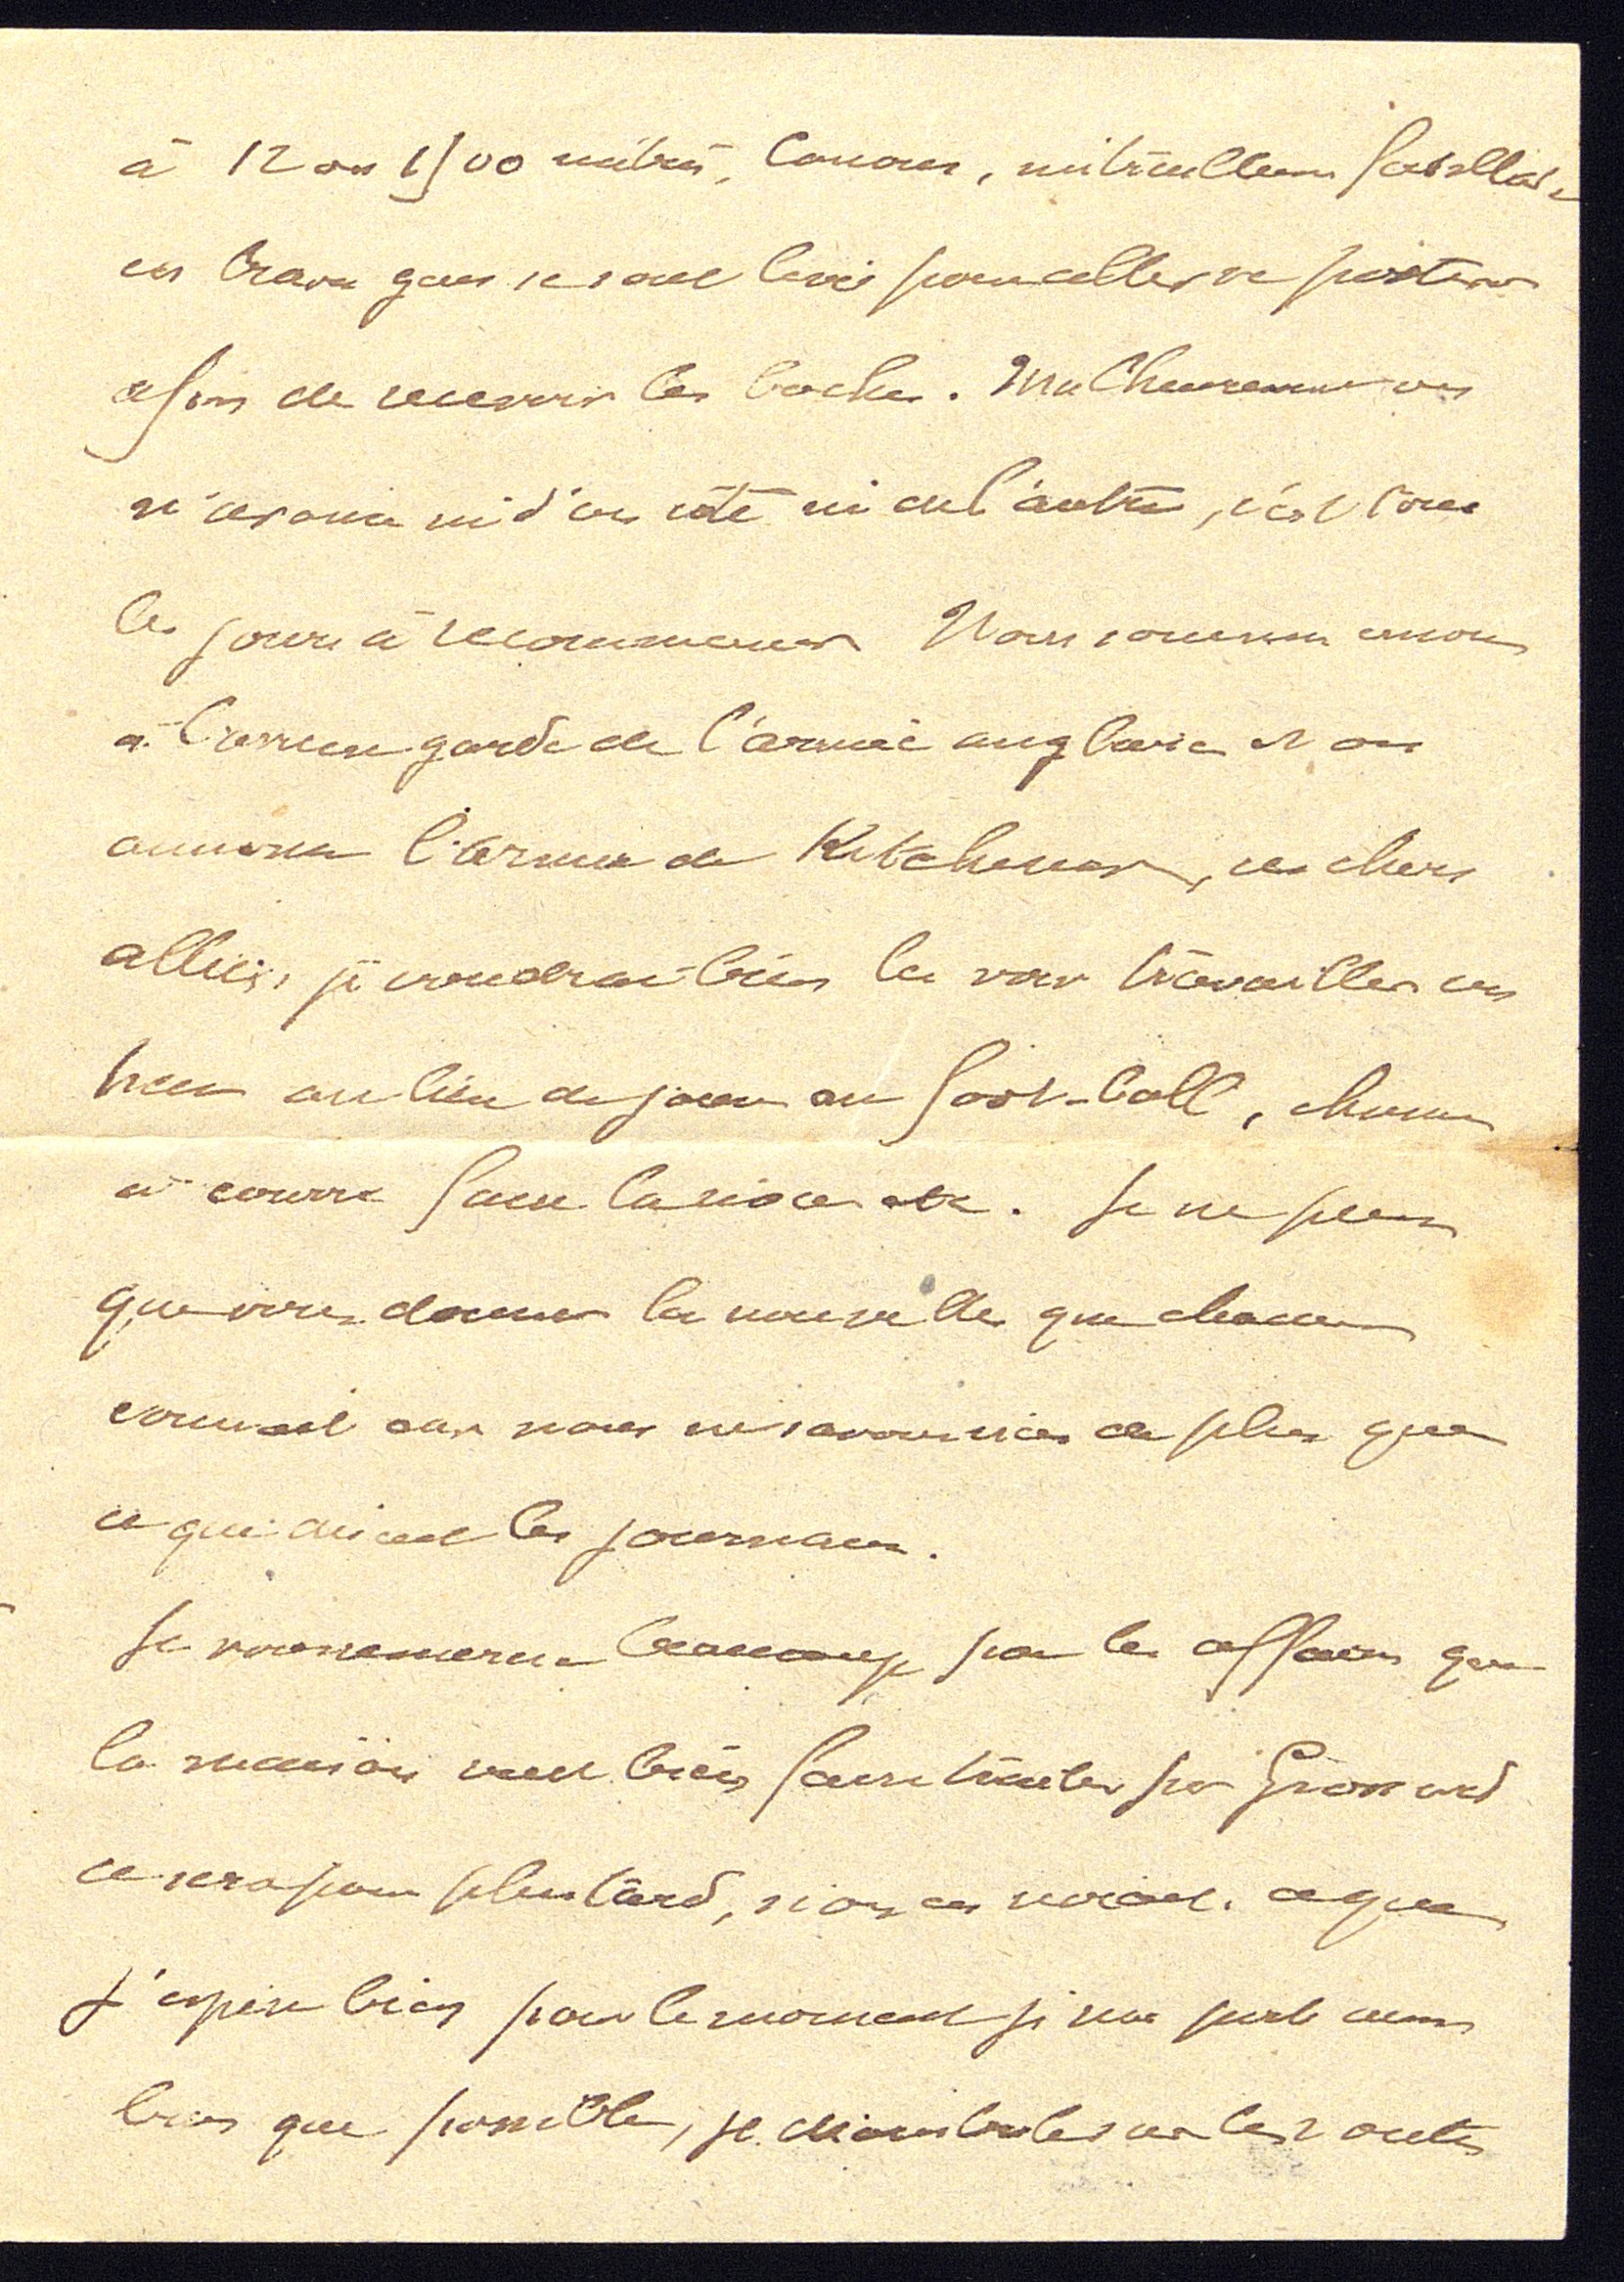 à 12 ou 1500 mètres, Canons, mitrailleuse
ces braves gens se sont levés pour aller se poster
afin de recevoir les boches. Malheureusement on
n'avance ni d'un côté ni de l'autre, c'est tous
les jours à recommencer Nous sommes encore
à l'arrière garde de l'armée anglaise et on
annonce l'armée de Kitchener, ces chers
alliés, je voudrais bien les voir travailler un
peu au lieu de jouer au foot-ball, chasse
à courre faire la noce etc. Je ne peux
que vous donner les nouvelles que chacun
connait car nous ne savons rien de plus que
ce que disent les journaux.
Je vous remercie beaucoup pour les affaires que
la maison veut bien faire traiter par
ce sera pour plus tard, si on en revient. ce que
j'espère bien pour le moment je me porte aussi
bien que possible, je sur les routes